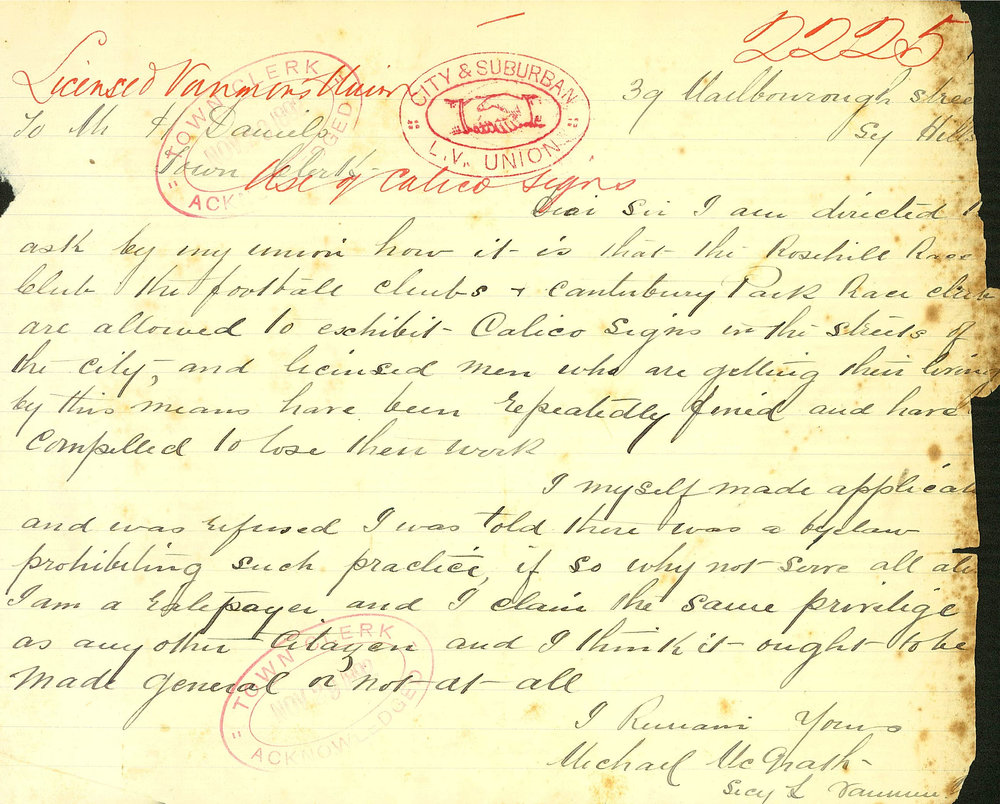 2225
Licensed Vanmens Union
CITY & SUBURBAN
L.V. UNION
39 Mailbourough stree
Sy Hills
To Mr H Daniels
Town Clerk
TOWN CLERK
ACKNOWLEDGED
Use of Calico Signs
Dear Sir I am directed t
ask by my union how it is that the Rosehill Race
Club the football clubs + Canterbury Park Race club
are allowed to exhibit Calico Signs in the streets of
the city, and licinsed men who are getting their living
by this means have been repeatedly fined and have
Compelled to lose their work
I myself made applicat
and was refused I was told there was a bylaw
prohibiting such practice, if so why not serve all ali
I am a ratepayer and I claim the same privilige
as any other Citazen and I think it ought to be
made general or not at all
TOWN CLERK
ACKNOWLEDGED
I Remain Yours
Michael McGrath
Secy L Vanmen